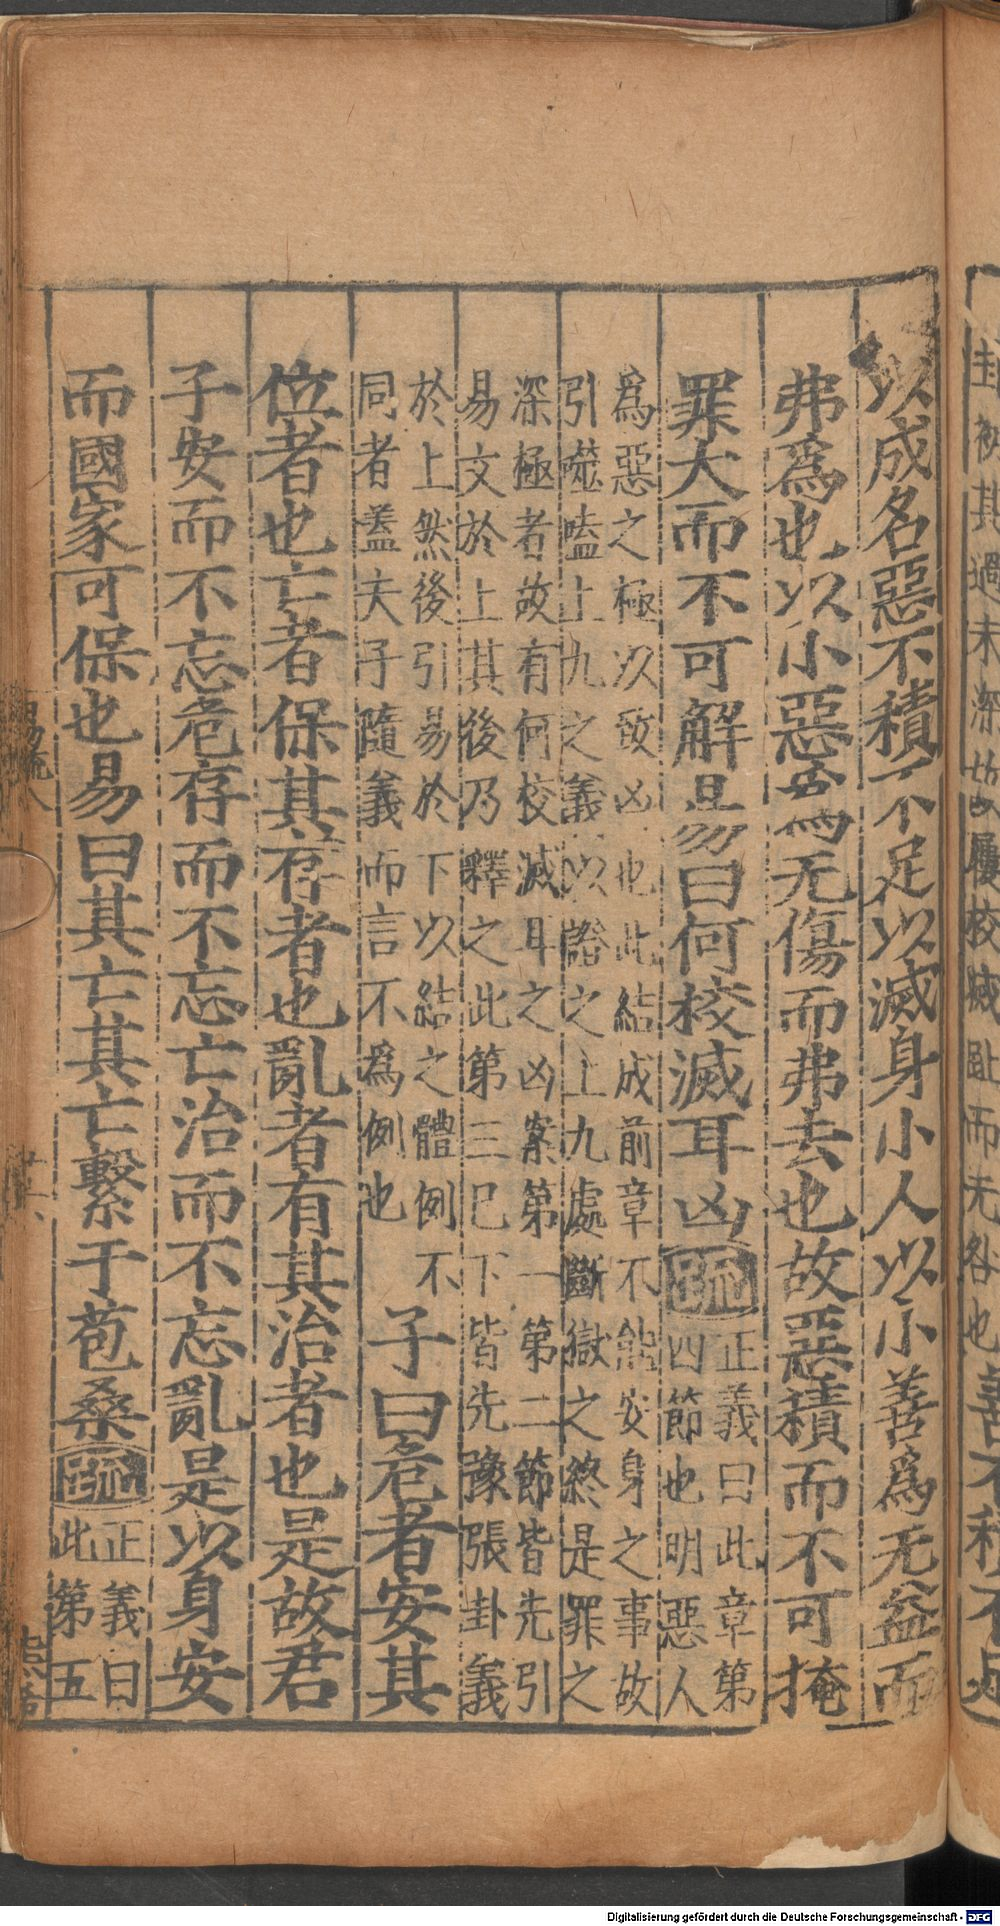 卦被其過未深故屨校滅趾而无咎也善不積不足
以成名惡不積不足以滅身小人以小善爲无益而
弗爲也以小惡爲无傷而弗去也故惡積而不可掩
罪大而不可解易曰何校滅耳凶疏正義曰此章第
四節也明惡人
爲惡之極以致凶也此結成前章不能安身之事故
引噬嗑上九之義以證之上九處斷獄之終是罪之
深極者故有何校滅耳之凶案第一第二節皆先引
易文於上其後乃釋之此第三已下皆先豫張卦義
於上然後引易於下以結之體例不
同者蓋夫子隨義而言不爲例也
子曰危者安其
位者也亡者保其存者也亂者有其治者也是故君
子安而不忘危存而不忘亡治而不忘亂是以身安
而國家可保也易曰其亡其亡繫于苞桑疏正義曰
此第五
易疏八
Digitalisierung gefördert durch die Deutsche Forschungsgemeinschaft - DFG